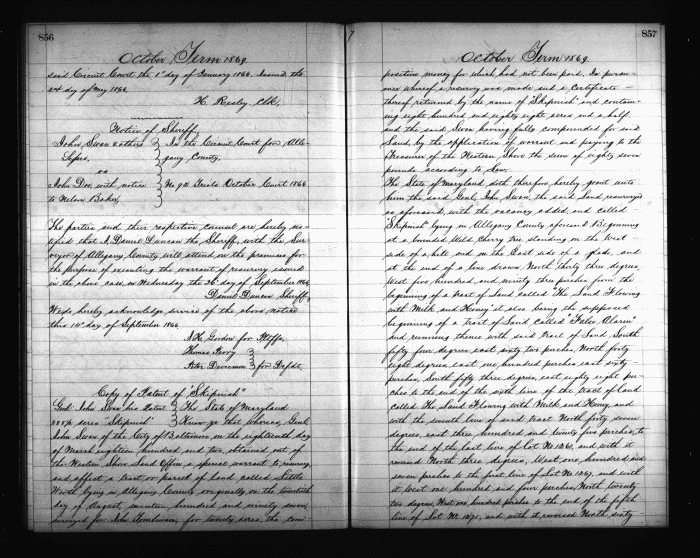 856
October Term 1869.
said Circuit Court the 1st day of January 1866. Issued the
24 day of May 1866.
H. Resley Clk.
Notice of Sheriff,
John Swan & others In the Circuit Court for Alle-
Lessee, gany County,
vs
John Doe, with notice No 92 Trials October Court 1866
to Nelson Baker,
The parties and their respective counsel are hereby no-
tified that I, Daniel Duncan the Sheriff, with the Sur-
veyor of Allegany County will attend on the premises for
the purpose of executing the warrant of resurvey issued
in the above case, on Wednesday the 26th day of September 1866
Daniel Duncan Sheriff,
We do hereby acknowledge service of the above notice
this 14th day of September 1866.
J. H. Gordon for Plffs,
Thomas Perry
for Defdt.
Copy of Patent of "Skipnish"
Genl. John Swan his Patent The State of Maryland
acres "Skipnish" Know ye that whereas, Genl,
John Swan of the City of Baltimore on the eighteenth day
of March eighteen hundred and two, obtained out of
the Western Shore Land Office a special warrant to resurvey
and affect a tract or parcel of land called Little
Worth, lying in Allegany County originally on the twentieth
day of August, seventeen hundred and ninety seven
surveyed for John Tomlinson, for twenty acres, the com-
857
October Term 1869.
position money for which had not been paid, In pursu-
ance whereof a resurvey was made and a Certificate
thereof returned by the name of "Skipnish" and contain-
ing eight hundred and eighty eight acres and a half
and the said Swan having fully compounded for said
Land, by the application of warrant and paying to the
Treasurer of the Western Shore the sum of eighty seven
pounds according to Law.
The State of Maryland doth therefore hereby grant unto
him the said Genl, John Swan, the said Land resurveyed
as aforesaid with the vacancy added, and called
Skipnish lying in Allegany County aforesaid Beginning
at a bounded Wild Cherry tree standing on the West
side of a hill and on the East side of a glade, and
at the end of a line drawn, North thirty three degrees,
West five hundred, and ninety three perches from the
beginning of a tract of Land called "The Land Flowing
with Milk and Honey" it also being the supposed
beginning of a tract of Land called "False Alarm"
and running thence with said tract of Land South
fifty four degrees, east sixty two perches, North forty
eight degrees, east one hundred perches, east sixty
perches, South fifty three degrees, east eighty eight per-
ches to the end of the sixth line of the tract of land
called The Land Flowing with Milk and Honey, and
with the seventh line of said tract North forty seven
degrees, east three hundred and twenty five perches, to
the end of the last line of Lot No 1860, and with it
reversed North three degrees, West one hundred and
seven perches to the first line of Lot No 1867, and with
it West one hundred and four perches, North twenty
two degrees, West one hundred perches to the end of the fifth
line of Lot No 1871, and with it reversed North sixty